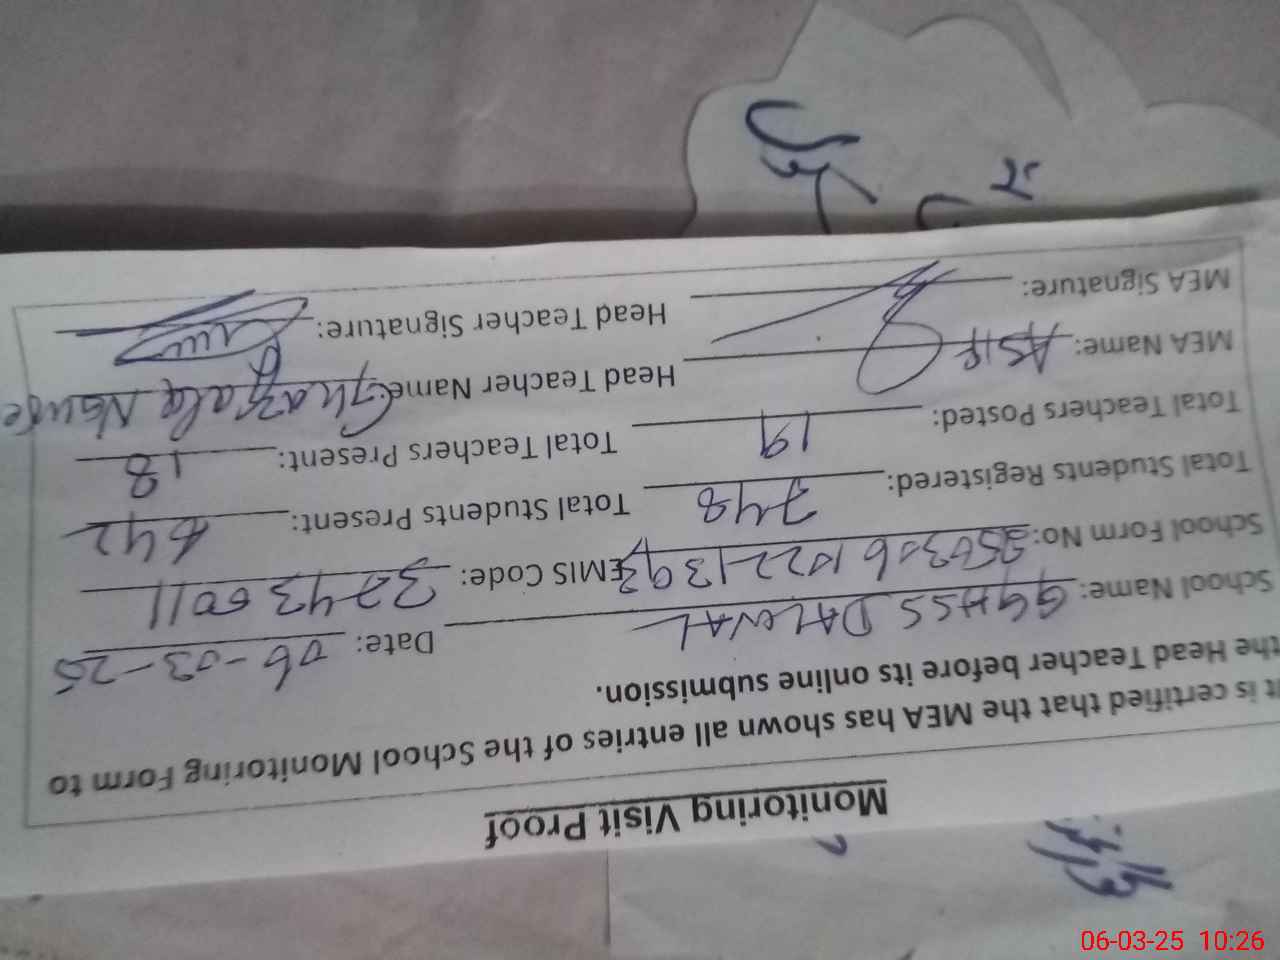 Monitoring Visit Proof
It is certified that the MEA has shown all entries of the School Monitoring Form to
the Head Teacher before its online submission.
School Name: GGHSS DALWAL Date: 06-03-25
School Form No: EMIS Code:
Total Students Registered: 748 Total Students Present: 642
Total Teachers Posted: 19 Total Teachers Present: 18
MEA Name: ASIF Head Teacher Name: Ghazala
MEA Signature: Head Teacher Signature:
06-03-25 10:26